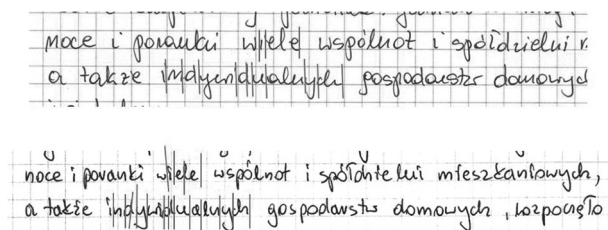 noce i poranki wiele wspólnot i spółdzielni
a także indywidualnych gospodarstw domowyc
noce i poranki wiele wspólnot i spółdzielni mieszkaniowych,
a także indywidualnych gospodarstw domowych, rozpoczęło